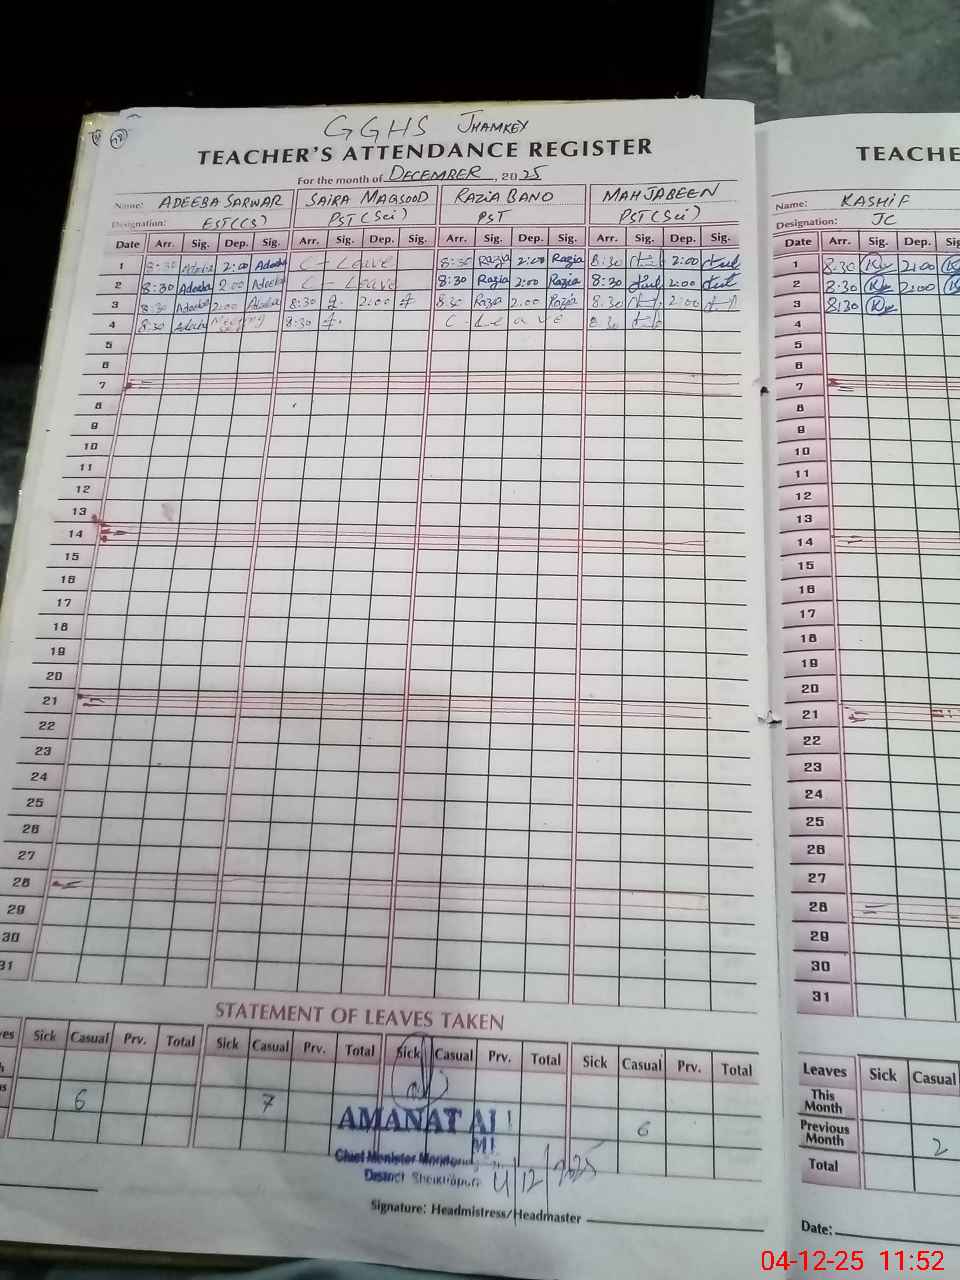 GGHS JHAMKEY
TEACHER'S ATTENDANCE REGISTER
For the month of DECEMBER, 2025
Name: ADEEBA SARWAR SAIRA MAQSOOD RAZIA BANO MAHJABEEN
Designation: EST(CS) PST(Sci) PST PST(Sci)
Date Arr. Sig. Dep. Sig. Arr. Sig. Dep. Sig. Arr. Sig. Dep. Sig. Arr. Sig. Dep. Sig.
1 8:30 Adeeba 2:00 Adeeba C - Leave 8:30 Razia 2:00 Razia 8:30 2:00
2 8:30 Adeeba 2:00 Adeeba C - Leave 8:30 Razia 2:00 Razia 8:30 2:00
3 8:30 Adeeba 2:00 Adeeba 8:30 2:00 8:30 Razia 2:00 Razia 8:30 2:00
4 8:30 Meeting 8:30 C - Leave 8:30
5
6
7
8
9
10
11
12
13
14
15
16
17
18
19
20
21
22
23
24
25
26
27
28
29
30
31
STATEMENT OF LEAVES TAKEN
Sick Casual Prv. Total Sick Casual Prv. Total Sick Casual Prv. Total Sick Casual Prv. Total
6 7 6
AMANAT ALI
Chief Minister Monitoring
District Sheikhupura 4/12/2025
Signature: Headmistress/Headmaster
TEACHE
Name: KASHIF
Designation: JC
Date Arr. Sig. Dep.
1 8:30 2:00
2 8:30 2:00
3 8:30
4
5
6
7
8
9
10
11
12
13
14
15
16
17
18
19
20
21
22
23
24
25
26
27
28
29
30
31
Leaves Sick Casual
This Month
Previous Month 2
Total
Date:
04-12-25 11:52